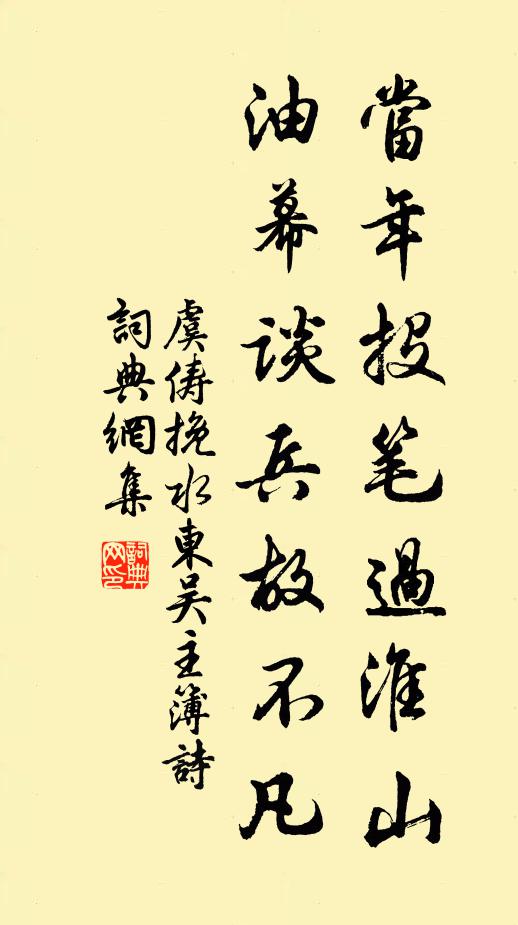 當年投笔過淮山
油幕談兵故不凡
虞儔挽水東吴主簿詩
詞典網集
詞典网印